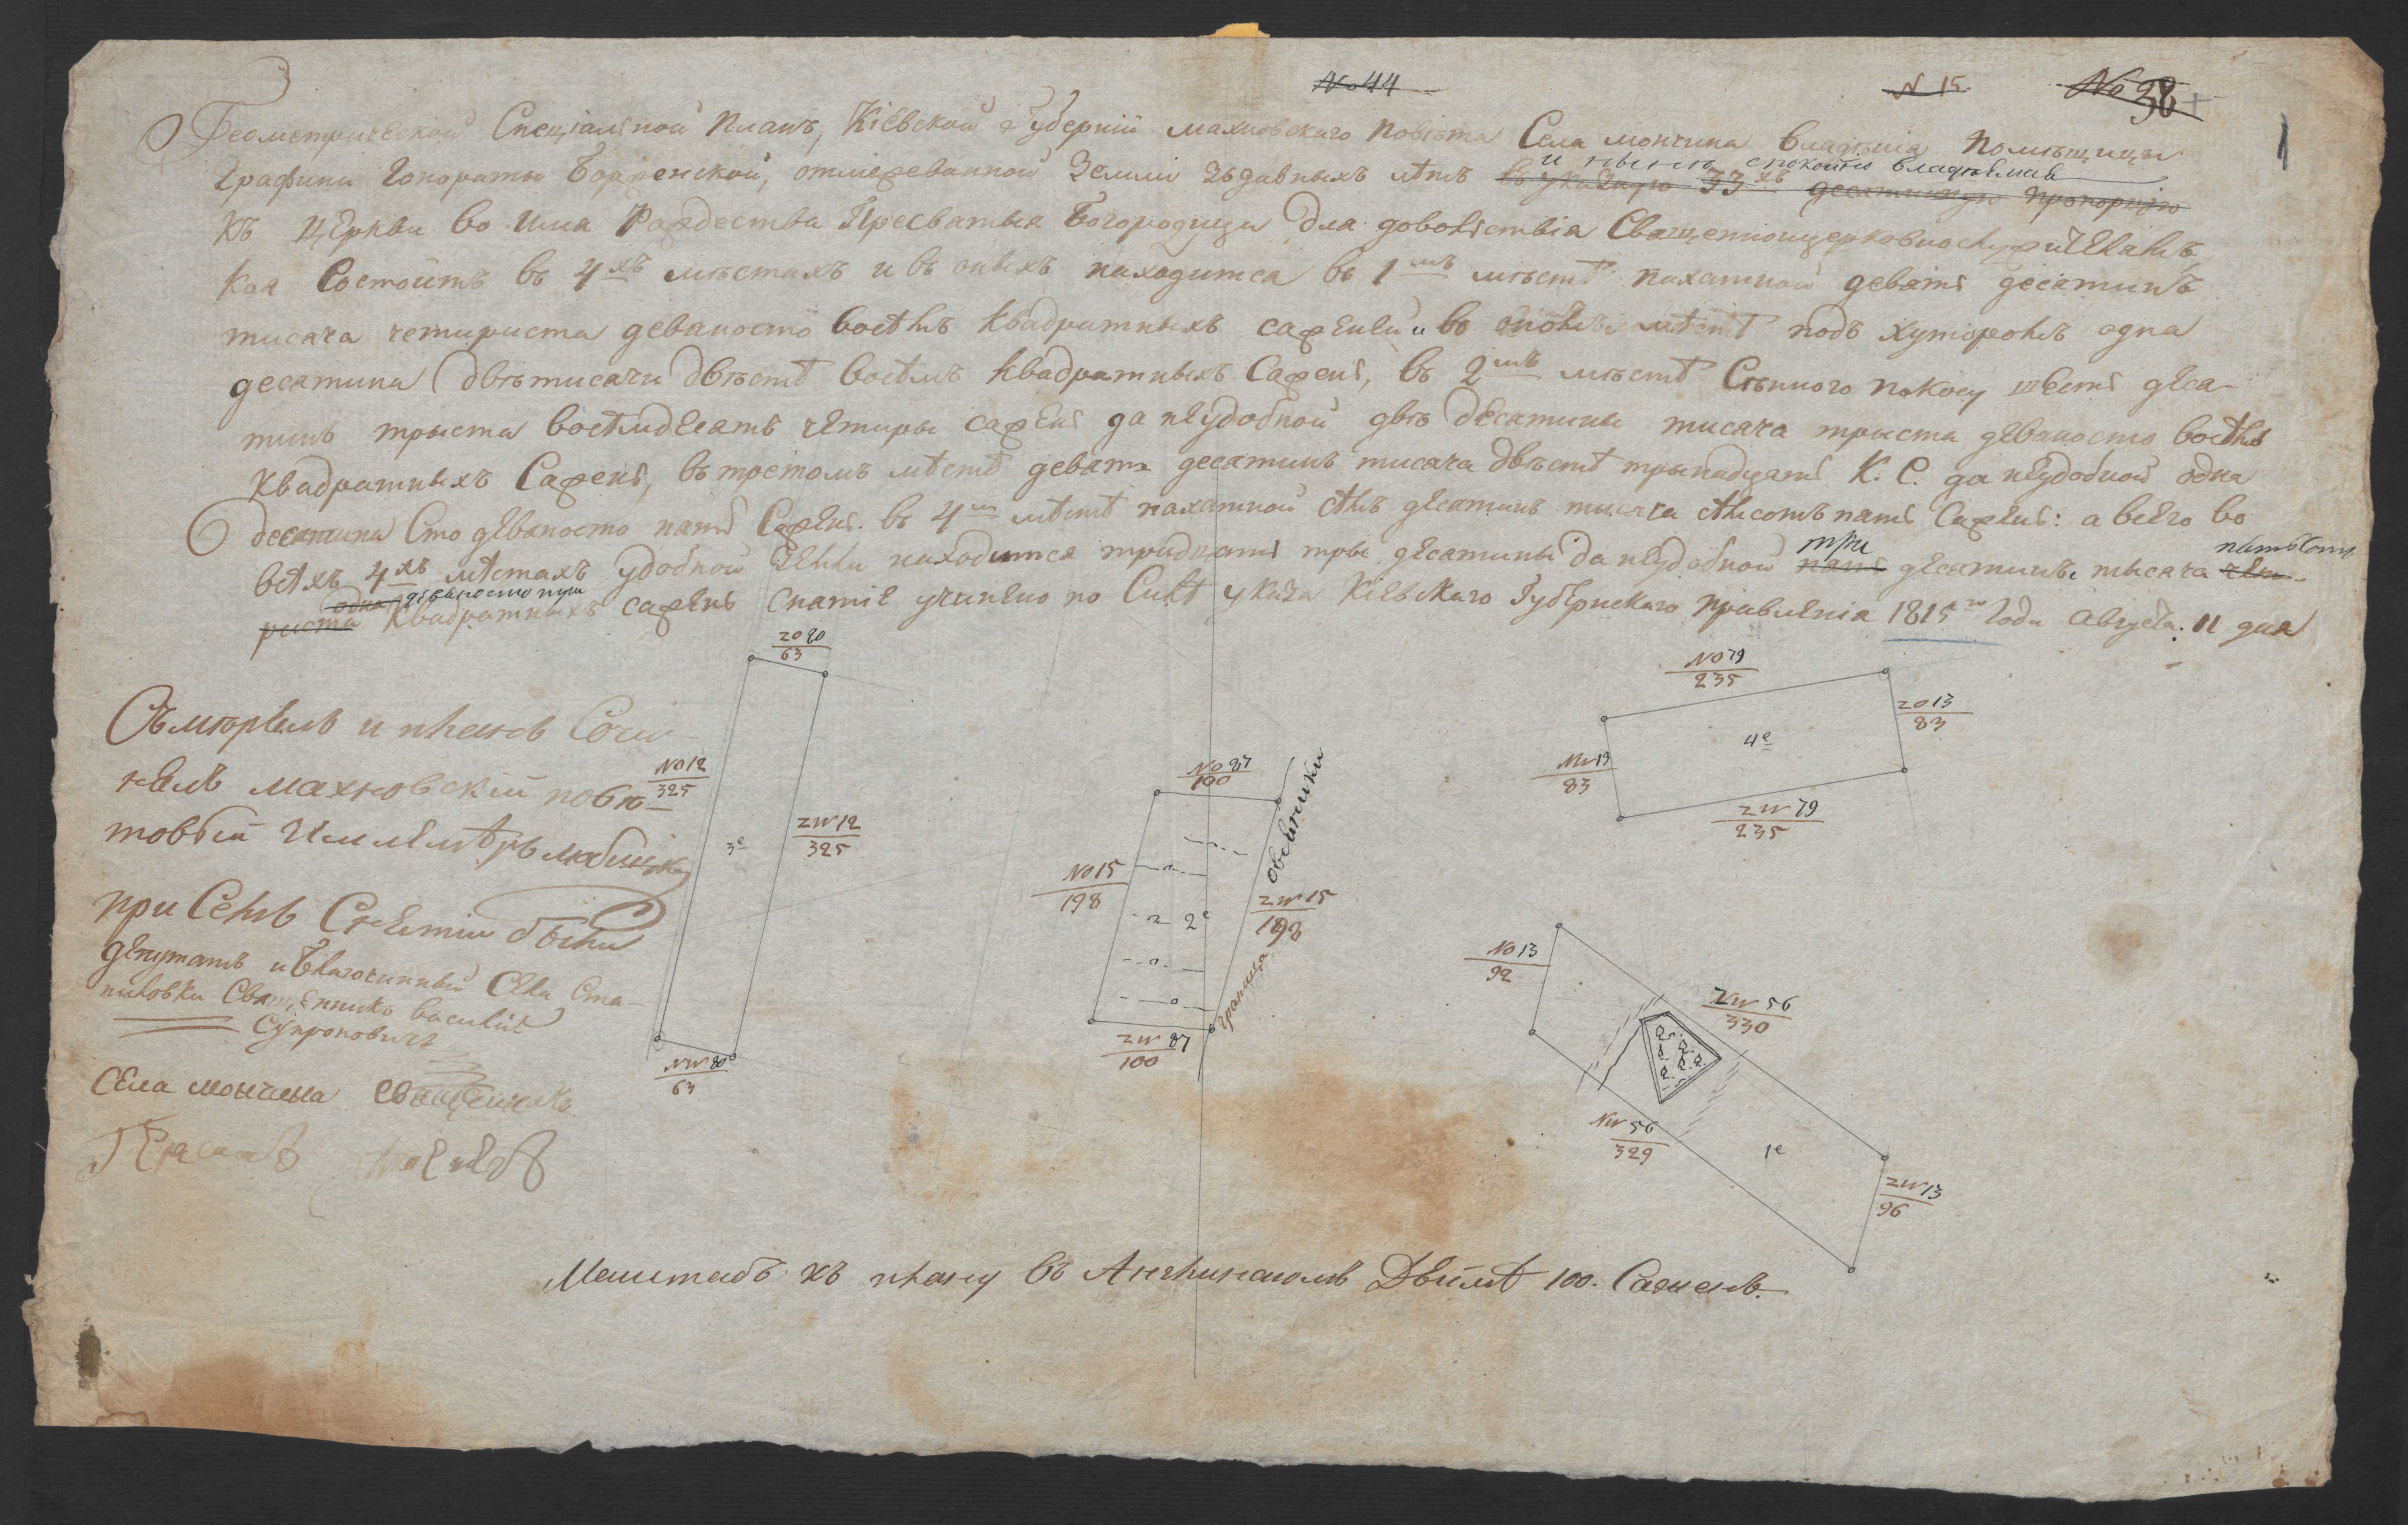 No 44
N 15.
No 38
1
Геометрической Специальной Планъ, Кіевской Губерніи махновскаго повѣта Села мончина владѣнія помѣщицы
и нынѣ спокойно владѣемая
Графини Гонораты Борженской, отмежеванной Земли здавныхъ лѣтъ въ указную 33хъ десятинную пропорцію
къ Церкви во имя Рождества Пресвятыя Богородицы для доволствія Священноцерковнослужителямъ,
коя Состоитъ въ 4хъ мѣстахъ и въ оныхъ находитса въ 1мъ мѣстѣ пахатной девять десятинъ
тисяча четириста девяносто восѣмъ квадратныхъ сажень и въ ономъ мѣстѣ подъ хуторомъ одна
десятина двѣ тисячи двѣстѣ восѣмъ квадратныхъ Сажень, въ 2мъ мѣстѣ Сѣнного покосу шесть деся-
тинъ трыста восѣмдесятъ четиры сажень да неудобной двѣ десятины тисяча трыста девяносто восѣмъ
квадратныхъ Сажень, въ третомъ мѣстѣ девять десятинъ тисяча двѣстѣ трынадцать К. С. да неудобной одна
десятина Сто девяносто пять Сажень. въ 4мъ мѣстѣ пахатной сѣмъ десятинъ тысяча сѣмсотъ пять Сажень: а всего во
три
пятьсотъ
всѣхъ 4хъ мѣстахъ удобной земли находитса тридцать тры десятины да неудобной пять десятинъ тысяча чети-
одна девяносто тры
риста квадратныхъ сажень Снятіе учинено по Силѣ указа Кіевскаго Губернскаго Правленія 1815го года Августа 11 дня
Съмѣрялъ и планъ Сочи-
нялъ махновскій повѣ-
товый Землемѣръ
при Семъ Снятіи были
депутатъ и Благочинный Села Ста-
ниловки Священникъ василій
Супроновичъ
Села мончина священникъ
Герасимъ
ZO 80
63
NO 12
325
3е
ZW 12
325
NW 80
63
NO 87
100
овечники
NO 15
198
2е
ZW 15
198
граница
ZW 87
100
NO 79
235
ZO 13
83
4е
NW 13
83
ZW 79
235
NO 13
92
ZW 56
330
NW 56
329
1е
ZW 13
96
Маштабъ къ плану въ Англинскомъ Дюймѣ 100. Саженъ.